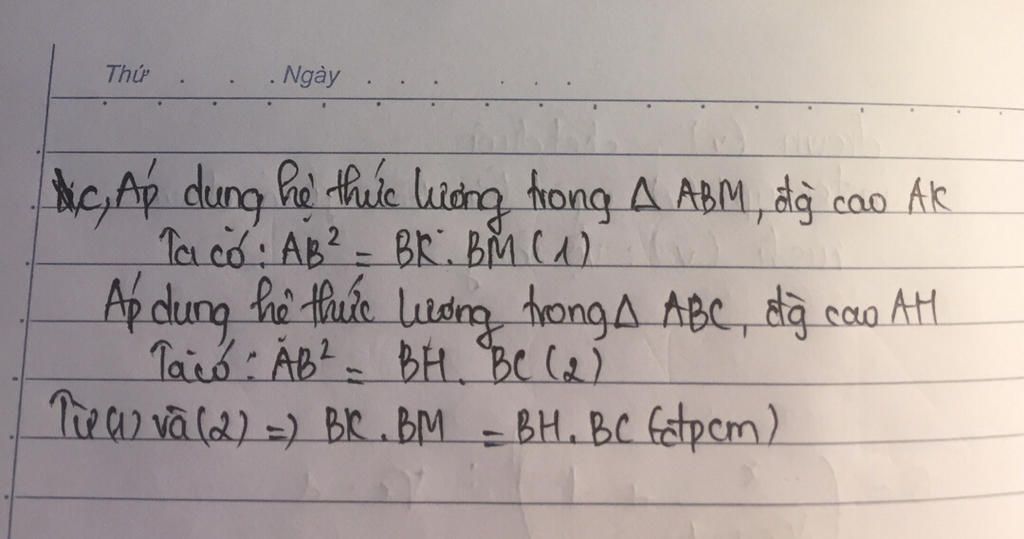 Thứ . . . Ngày . . . . . . .
c, Áp dụng hệ thức lượng trong Δ ABM, đg̀ cao AK
Ta có : AB² = BK . BM (1)
Áp dụng hệ thức lượng trong Δ ABC, đg̀ cao AH
Ta có : AB² = BH . BC (2)
Từ (1) và (2) => BK . BM = BH . BC (đpcm)